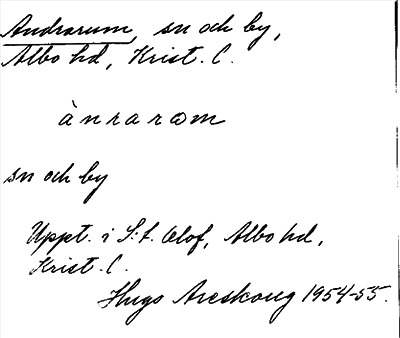 Andrarum, sn och by,
Albo hd, Krist. C.
ànrarωm
sn och by
Uppt. i S:t. Olof, Albo hd,
Krist. C.
Hugo Areskoug 1954-55.